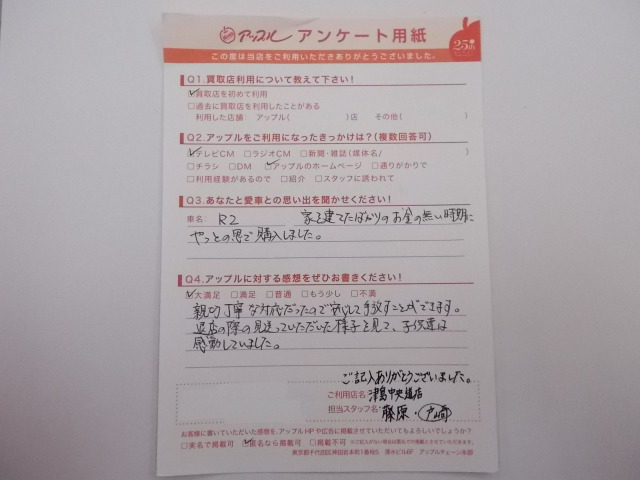 アップル アンケート用紙
25th
この度は当店をご利用いただきありがとうございました。
Q1.買取店利用について教えて下さい!
☑買取店を初めて利用
□過去に買取店を利用したことがある
利用した店舗 アップル( )店 その他( )
Q2.アップルをご利用になったきっかけは?(複数回答可)
☑テレビCM □ラジオCM □新聞・雑誌(媒体名/ )
□チラシ □DM ☑アップルのホームページ □通りがかりで
□利用経験があるので □紹介 □スタッフに誘われて
Q3.あなたと愛車との思い出を聞かせください!
車名: R2 家を建てたばかりのお金の無い時期に
やっとの思いで購入しました。
Q4.アップルに対する感想をぜひお書きください!
☑大満足 □満足 □普通 □もう少し □不満
親切丁寧な対応だったので安心して手放すことができます。
退店の際の見送っていただいた様子を見て、子供達は
感動していました。
ご記入ありがとうございました。
ご利用店名 津島中央道店
担当スタッフ名: 藤原・
お客様に書いていただいた感想を、アップルHPや広告に掲載させていただいてもよろしいでしょうか?
□実名で掲載可 ☑匿名なら掲載可 □掲載不可 ※ご記入がない場合は匿名での掲載とさせていただきます。
東京都千代田区神田岩本町1番地5 清水ビル6F アップルチェーン本部